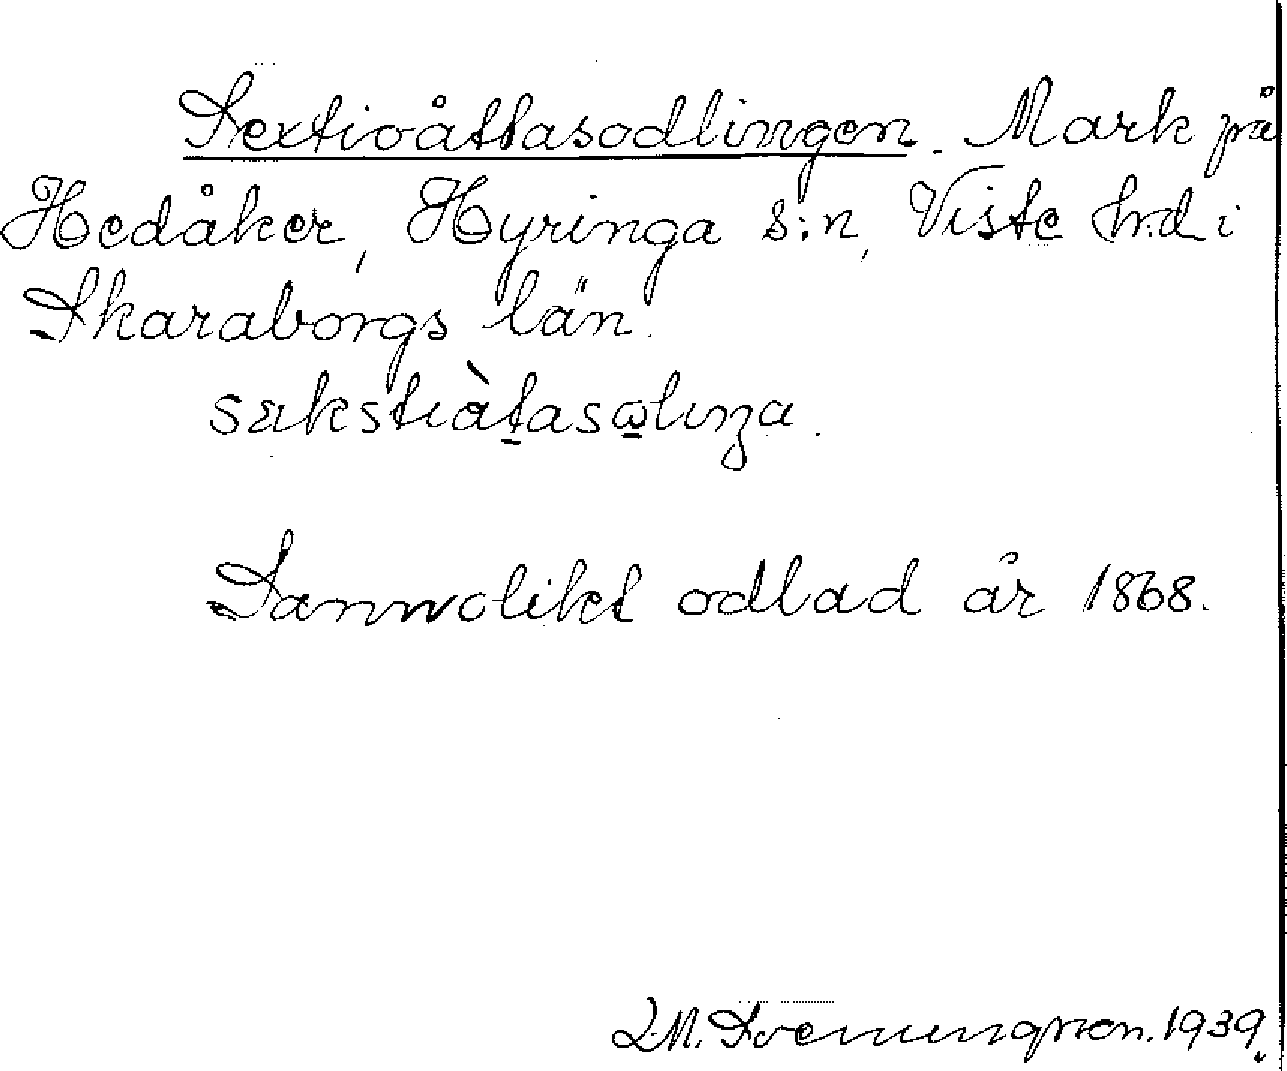 Sextioåttasodlingen. Mark på
Hedåker, Hyringa s:n, Viste hd i
Skaraborgs län.
sækstiàtasωliŋa.
Sannolikt odlad år 1868.
L.M. Svenungsson. 1939.